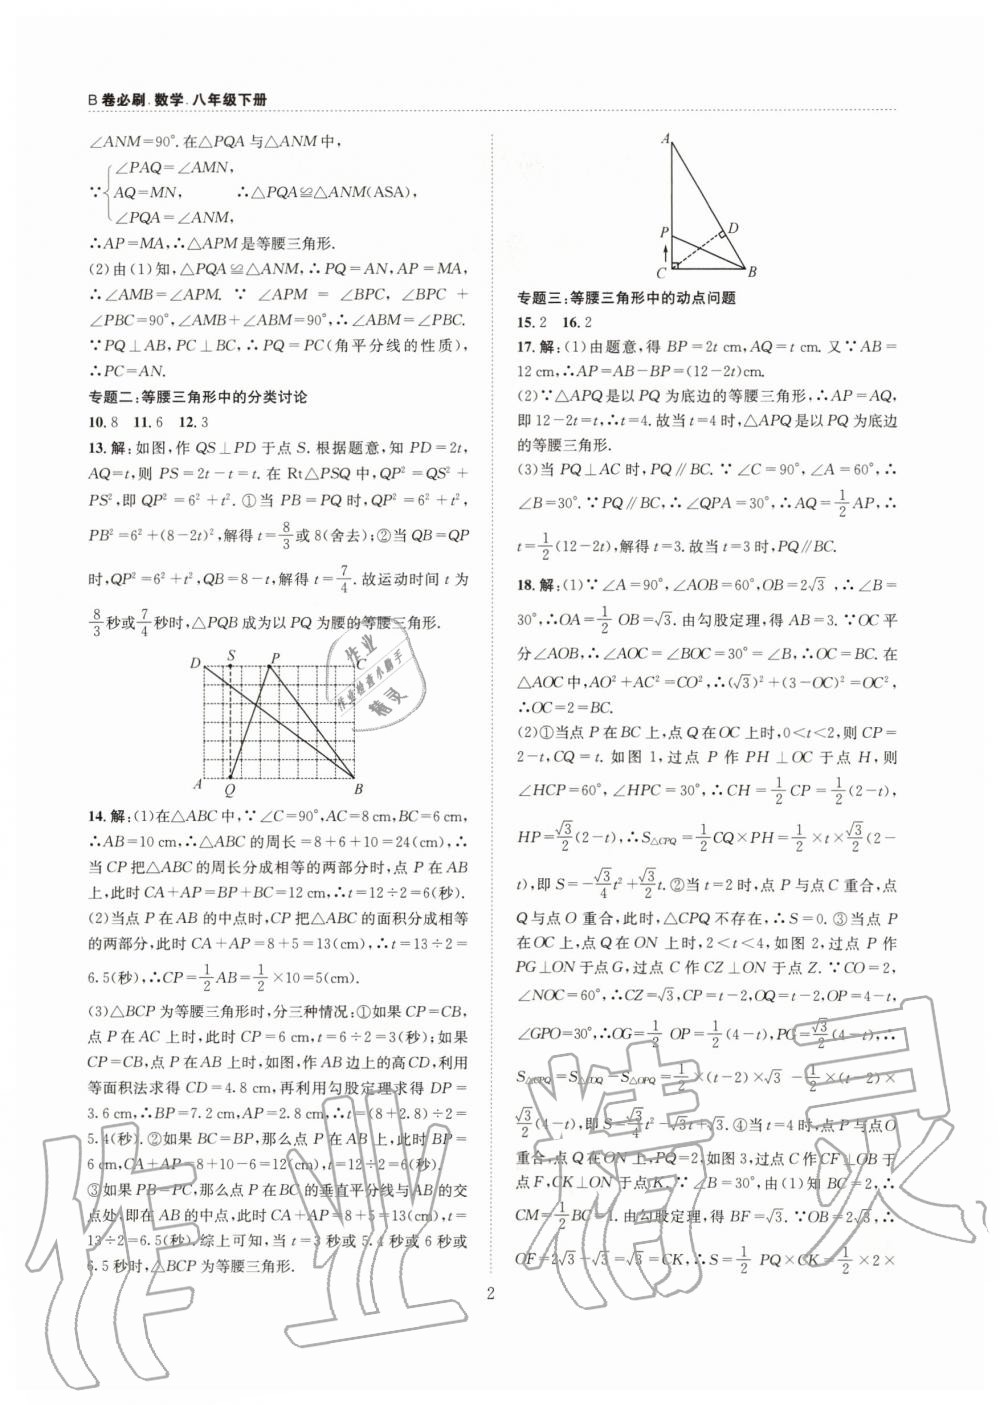 B卷必刷.数学.八年级下册
∠ANM=90°.在△PQA与△ANM中,
∵{∠PAQ=∠AMN,
AQ=MN, ∴△PQA≌△ANM(ASA),
∠PQA=∠ANM,
∴AP=MA,∴△APM是等腰三角形.
(2)由(1)知,△PQA≌△ANM,∴PQ=AN,AP=MA,
∴∠AMB=∠APM. ∵∠APM=∠BPC,∠BPC+
∠PBC=90°,∠AMB+∠ABM=90°,∴∠ABM=∠PBC.
∵PQ⊥AB,PC⊥BC,∴PQ=PC(角平分线的性质),
∴PC=AN.
专题二:等腰三角形中的分类讨论
10.8 11.6 12.3
13.解:如图,作QS⊥PD于点S.根据题意,知PD=2t,
AQ=t,则PS=2t-t=t.在Rt△PSQ中,QP²=QS²+
PS²,即QP²=6²+t².①当PB=PQ时,QP²=6²+t²,
PB²=6²+(8-2t)²,解得t=8/3或8(舍去);②当QB=QP
时,QP²=6²+t²,QB=8-t,解得t=7/4.故运动时间t为
8/3秒或7/4秒时,△PQB成为以PQ为腰的等腰三角形.
D S P C
A Q B
14.解:(1)在△ABC中,∵∠C=90°,AC=8cm,BC=6cm,
∴AB=10cm,∴△ABC的周长=8+6+10=24(cm),∴
当CP把△ABC的周长分成相等的两部分时,点P在AB
上,此时CA+AP=BP+BC=12cm,∴t=12÷2=6(秒).
(2)当点P在AB的中点时,CP把△ABC的面积分成相等
的两部分,此时CA+AP=8+5=13(cm),∴t=13÷2=
6.5(秒),∴CP=1/2AB=1/2×10=5(cm).
(3)△BCP为等腰三角形时,分三种情况:①如果CP=CB,
点P在AC上时,此时CP=6cm,t=6÷2=3(秒);如果
CP=CB,点P在AB上时,如图,作AB边上的高CD,利用
等面积法求得CD=4.8cm,再利用勾股定理求得DP=
3.6cm,∴BP=7.2cm,AP=2.8cm,∴t=(8+2.8)÷2=
5.4(秒).②如果BC=BP,那么点P在AB上,此时BP=
6cm,CA+AP=8+10-6=12(cm),t=12÷2=6(秒).
③如果PB=PC,那么点P在BC的垂直平分线与AB的交
点处,即在AB的中点,此时CA+AP=8+5=13(cm),t=
13÷2=6.5(秒).综上可知,当t=3秒或5.4秒或6秒或
6.5秒时,△BCP为等腰三角形.
A
D
P
C B
专题三:等腰三角形中的动点问题
15.2 16.2
17.解:(1)由题意,得BP=2t cm,AQ=t cm.又∵AB=
12cm,∴AP=AB-BP=(12-2t)cm.
(2)∵△APQ是以PQ为底边的等腰三角形,∴AP=AQ,
即12-2t=t,∴t=4.故当t=4时,△APQ是以PQ为底边
的等腰三角形.
(3)当PQ⊥AC时,PQ∥BC.∵∠C=90°,∠A=60°,∴
∠B=30°.∵PQ∥BC,∴∠QPA=30°,∴AQ=1/2AP,∴
t=1/2(12-2t),解得t=3.故当t=3时,PQ∥BC.
18.解:(1)∵∠A=90°,∠AOB=60°,OB=2√3,∴∠B=
30°,∴OA=1/2 OB=√3.由勾股定理,得AB=3.∵OC平
分∠AOB,∴∠AOC=∠BOC=30°=∠B,∴OC=BC.在
△AOC中,AO²+AC²=CO²,∴(√3)²+(3-OC)²=OC²,
∴OC=2=BC.
(2)①当点P在BC上,点Q在OC上时,0<t<2,则CP=
2-t,CQ=t.如图1,过点P作PH⊥OC于点H,则
∠HCP=60°,∠HPC=30°,∴CH=1/2CP=1/2(2-t),
HP=√3/2(2-t),∴S△CPQ=1/2CQ×PH=1/2×t×√3/2(2-
t),即S=-√3/4t²+√3/2t.②当t=2时,点P与点C重合,点
Q与点O重合,此时,△CPQ不存在,∴S=0.③当点P
在OC上,点Q在ON上时,2<t<4,如图2,过点P作
PG⊥ON于点G,过点C作CZ⊥ON于点Z.∵CO=2,
∠NOC=60°,∴CZ=√3,CP=t-2,OQ=t-2,OP=4-t,
∠GPO=30°,∴OG=1/2 OP=1/2(4-t),PG=√3/2(4-t),∴
S△CPQ=S△COQ-S△OPQ=1/2×(t-2)×√3-1/2×(t-2)×
√3/2(4-t),即S=√3/4t²-√3t+√3.④当t=4时,点P与点O
重合,点Q在ON上,如图3,过点C作CF⊥OB于
点F,CK⊥ON于点K.∵∠B=30°,由(1)知BC=2,∴
CM=1/2BC=1.由勾股定理,得BF=√3.∵OB=2√3,∴
OF=2√3-√3=√3=CK,∴S=1/2 PQ×CK=1/2×2×
2
作业
作业检查小助手
精灵
作业精灵